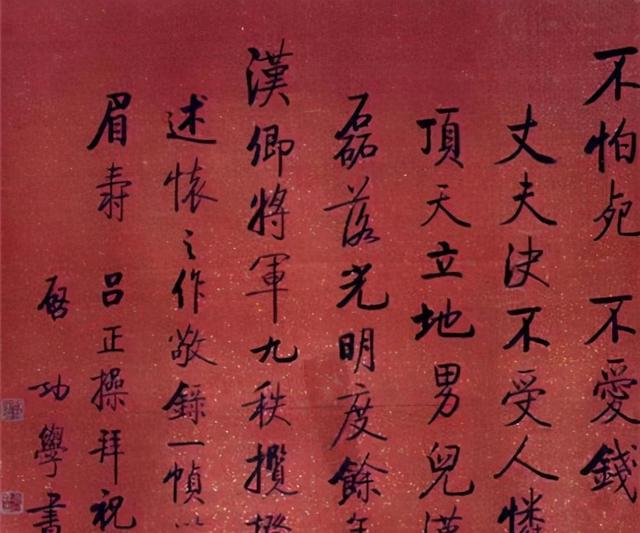 不怕死 不愛錢
丈夫決不受人憐
頂天立地男兒漢
磊落光明度餘年
漢卿將軍九秩攬揆
述懷之作敬錄一幀以
眉壽 呂正操拜祝
啟功學書